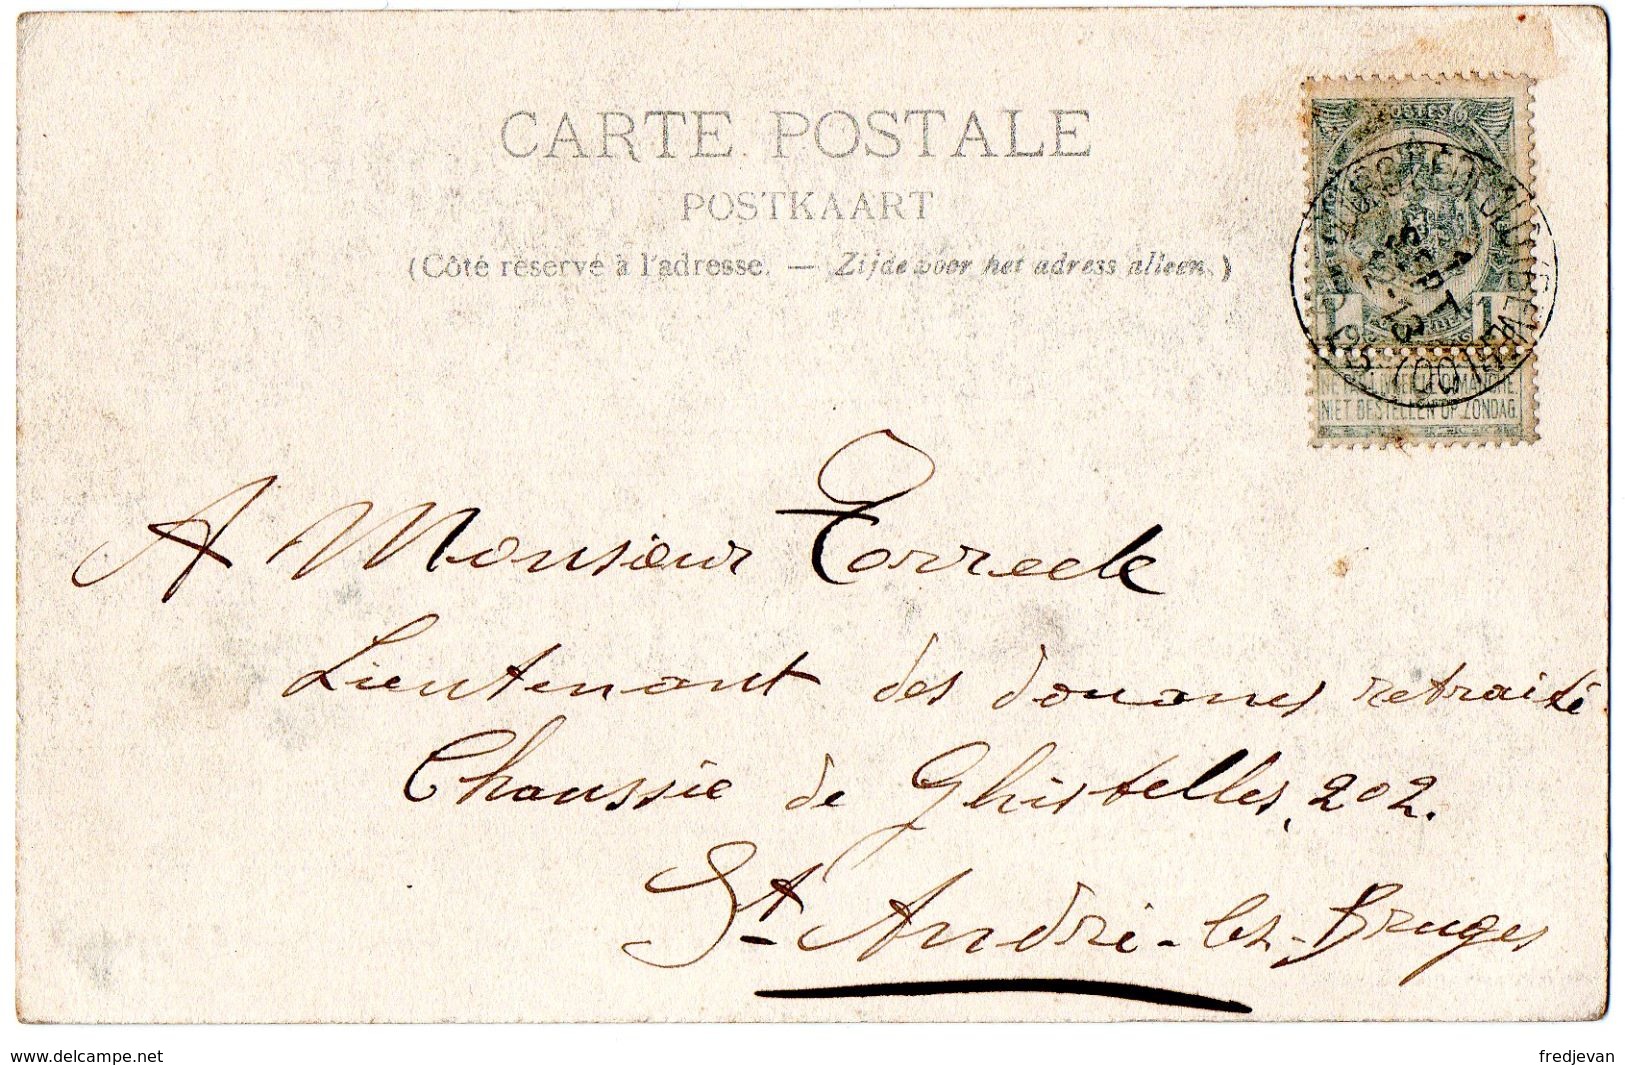 CARTE POSTALE
POSTKAART
(Côté réservé à l'adresse. — Zijde voor het adress alleen.)
POSTES
1 1
NE PAS LIVRER LE DIMANCHE
NIET BESTELLEN OP ZONDAG
A Monsieur Torreele
Lieutenant des douanes retraité
Chaussée de Ghistelles, 202.
St André-lez-Bruges
www.delcampe.net
fredjevan